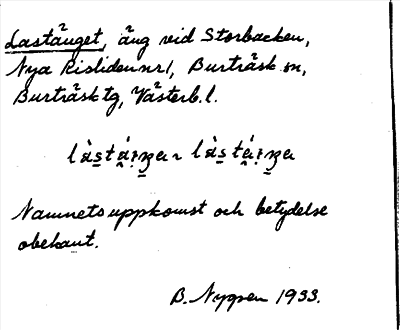 Lastänget, äng vid Storbacken,
Nya Risliden nr 1, Burträsk sn,
Burträsk tg, Västerb. l.
Namnets uppkomst och betydelse
obekant.
B. Nygren 1933.